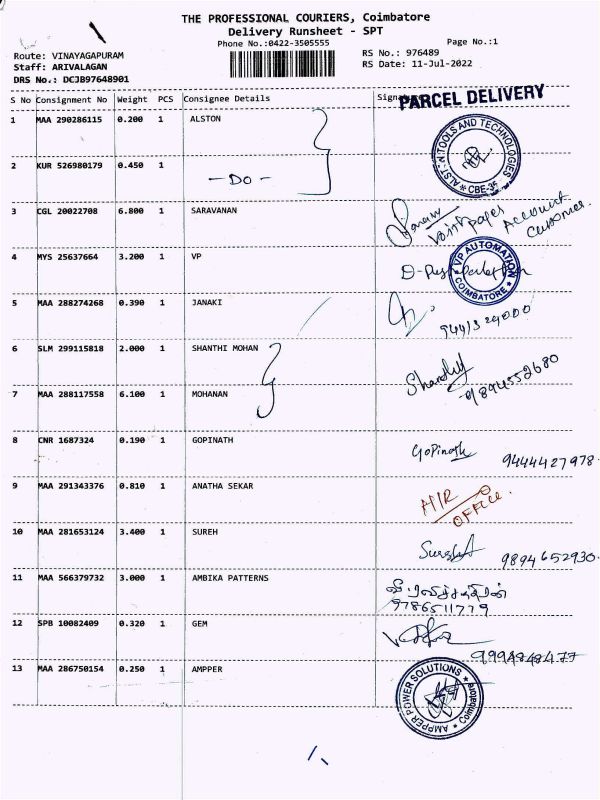 THE PROFESSIONAL COURIERS, Coimbatore
Delivery Runsheet - SPT
Phone No.:0422-3505555
Page No.:1
Route: VINAYAGAPURAM
RS No.: 976489
Staff: ARIVALAGAN
RS Date: 11-Jul-2022
DRS No.: DCJB97648901
S No Consignment No Weight PCS Consignee Details Signature
PARCEL DELIVERY
1 MAA 290286115 0.200 1 ALSTON
TOOLS AND TECHNOLOGIES
CBE-35
2 KUR 526980179 0.450 1 - DO -
3 CGL 20022708 6.800 1 SARAVANAN
Account
Customer.
4 MYS 25637664 3.200 1 VP
VP AUTOMATION
COIMBATORE
5 MAA 288274268 0.390 1 JANAKI
6 SLM 299115818 2.000 1 SHANTHI MOHAN
9894552680
7 MAA 288117558 6.100 1 MOHANAN
8 CNR 1687324 0.190 1 GOPINATH
Gopinath 9444427978.
9 MAA 291343376 0.810 1 ANATHA SEKAR
OFFICE.
10 MAA 281653124 3.400 1 SUREH
9894652930.
11 MAA 566379732 3.000 1 AMBIKA PATTERNS
9786511779
12 SPB 10082409 0.320 1 GEM
13 MAA 286750154 0.250 1 AMPPER
AMPPER POWER SOLUTIONS
Coimbatore